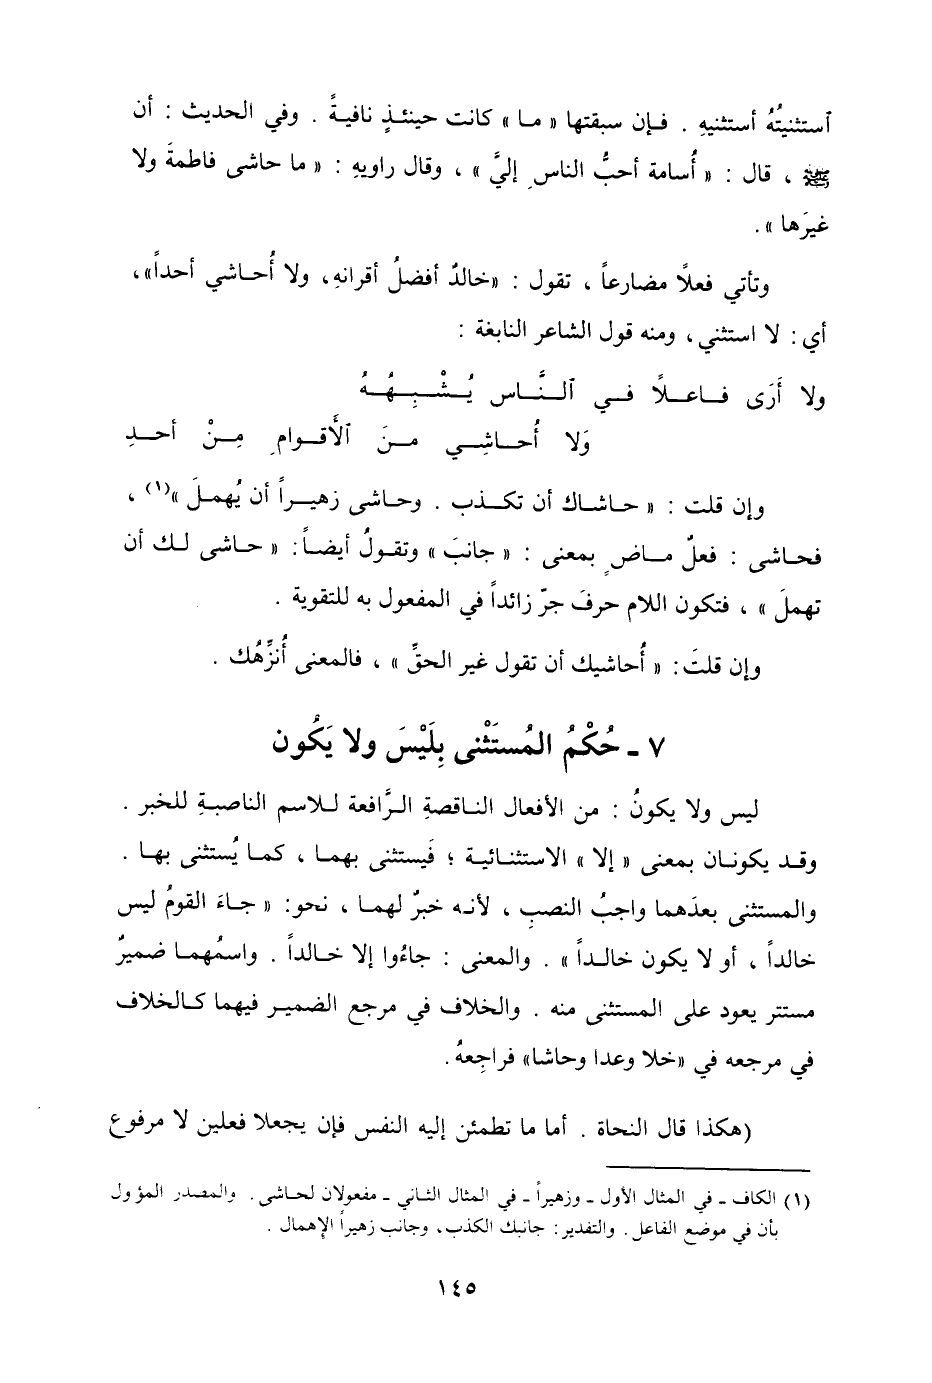 ٱستثنيتُهُ أستثنيهِ . فإن سبقتها « ما » كانت حينئذٍ نافيةً . وفي الحديث : أن
ﷺ ، قال : « أُسامة أحبُّ الناسِ إليَّ » ، وقال راويهِ : « ما حاشى فاطمةَ ولا
غيرَها » .
وتأتي فعلاً مضارعاً ، تقول : «خالدٌ أفضلُ أقرانهِ، ولا أُحاشي أحداً»،
أي : لا استثني، ومنه قول الشاعر النابغة :
ولا أَرَى فاعلاً في ٱلنَّاس يُشْبِهُهُ
وَلا أُحاشِي منَ ٱلأَقوامِ مِنْ أحدِ
وإن قلت : « حاشاك أن تكذب . وحاشى زهيراً أن يُهملَ »(١) ،
فحاشى : فعلٌ ماضٍ بمعنى : « جانبَ » وتقولُ أيضاً : « حاشى لك أن
تهملَ » ، فتكون اللام حرفَ جرّ زائداً في المفعول به للتقوية .
وإن قلتَ : « أُحاشيك أن تقول غير الحقِّ » ، فالمعنى أُنزِّهُك .
٧ - حُكْمُ المُستَثْنى بِلَيْسَ ولا يَكُون
ليس ولا يكونُ : من الأفعال الناقصةِ الرَّافعة للاسم الناصبةِ للخبر .
وقد يكونان بمعنى « إلا » الاستثنائية ؛ فَيستثنى بهما ، كما يُستثنى بها .
والمستثنى بعدَهما واجبُ النصبِ ، لأنه خبرٌ لهما ، نحو : « جاءَ القومُ ليس
خالداً ، أو لا يكون خالداً » . والمعنى : جاءُوا إلا خالداً . واسمُهما ضميرٌ
مستتر يعود على المستثنى منه . والخلاف في مرجع الضمير فيهما كالخلاف
في مرجعه في «خلا وعدا وحاشا» فراجِعهُ .
(هكذا قال النحاة . أما ما تطمئن إليه النفس فإن يجعلا فعلين لا مرفوع
(١) الكاف - في المثال الأول - وزهيراً - في المثال الثاني - مفعولان لحاشى . والمصدر المؤول
بأن في موضع الفاعل . والتقدير : جانبك الكذب، وجانب زهيراً الإهمال .
١٤٥